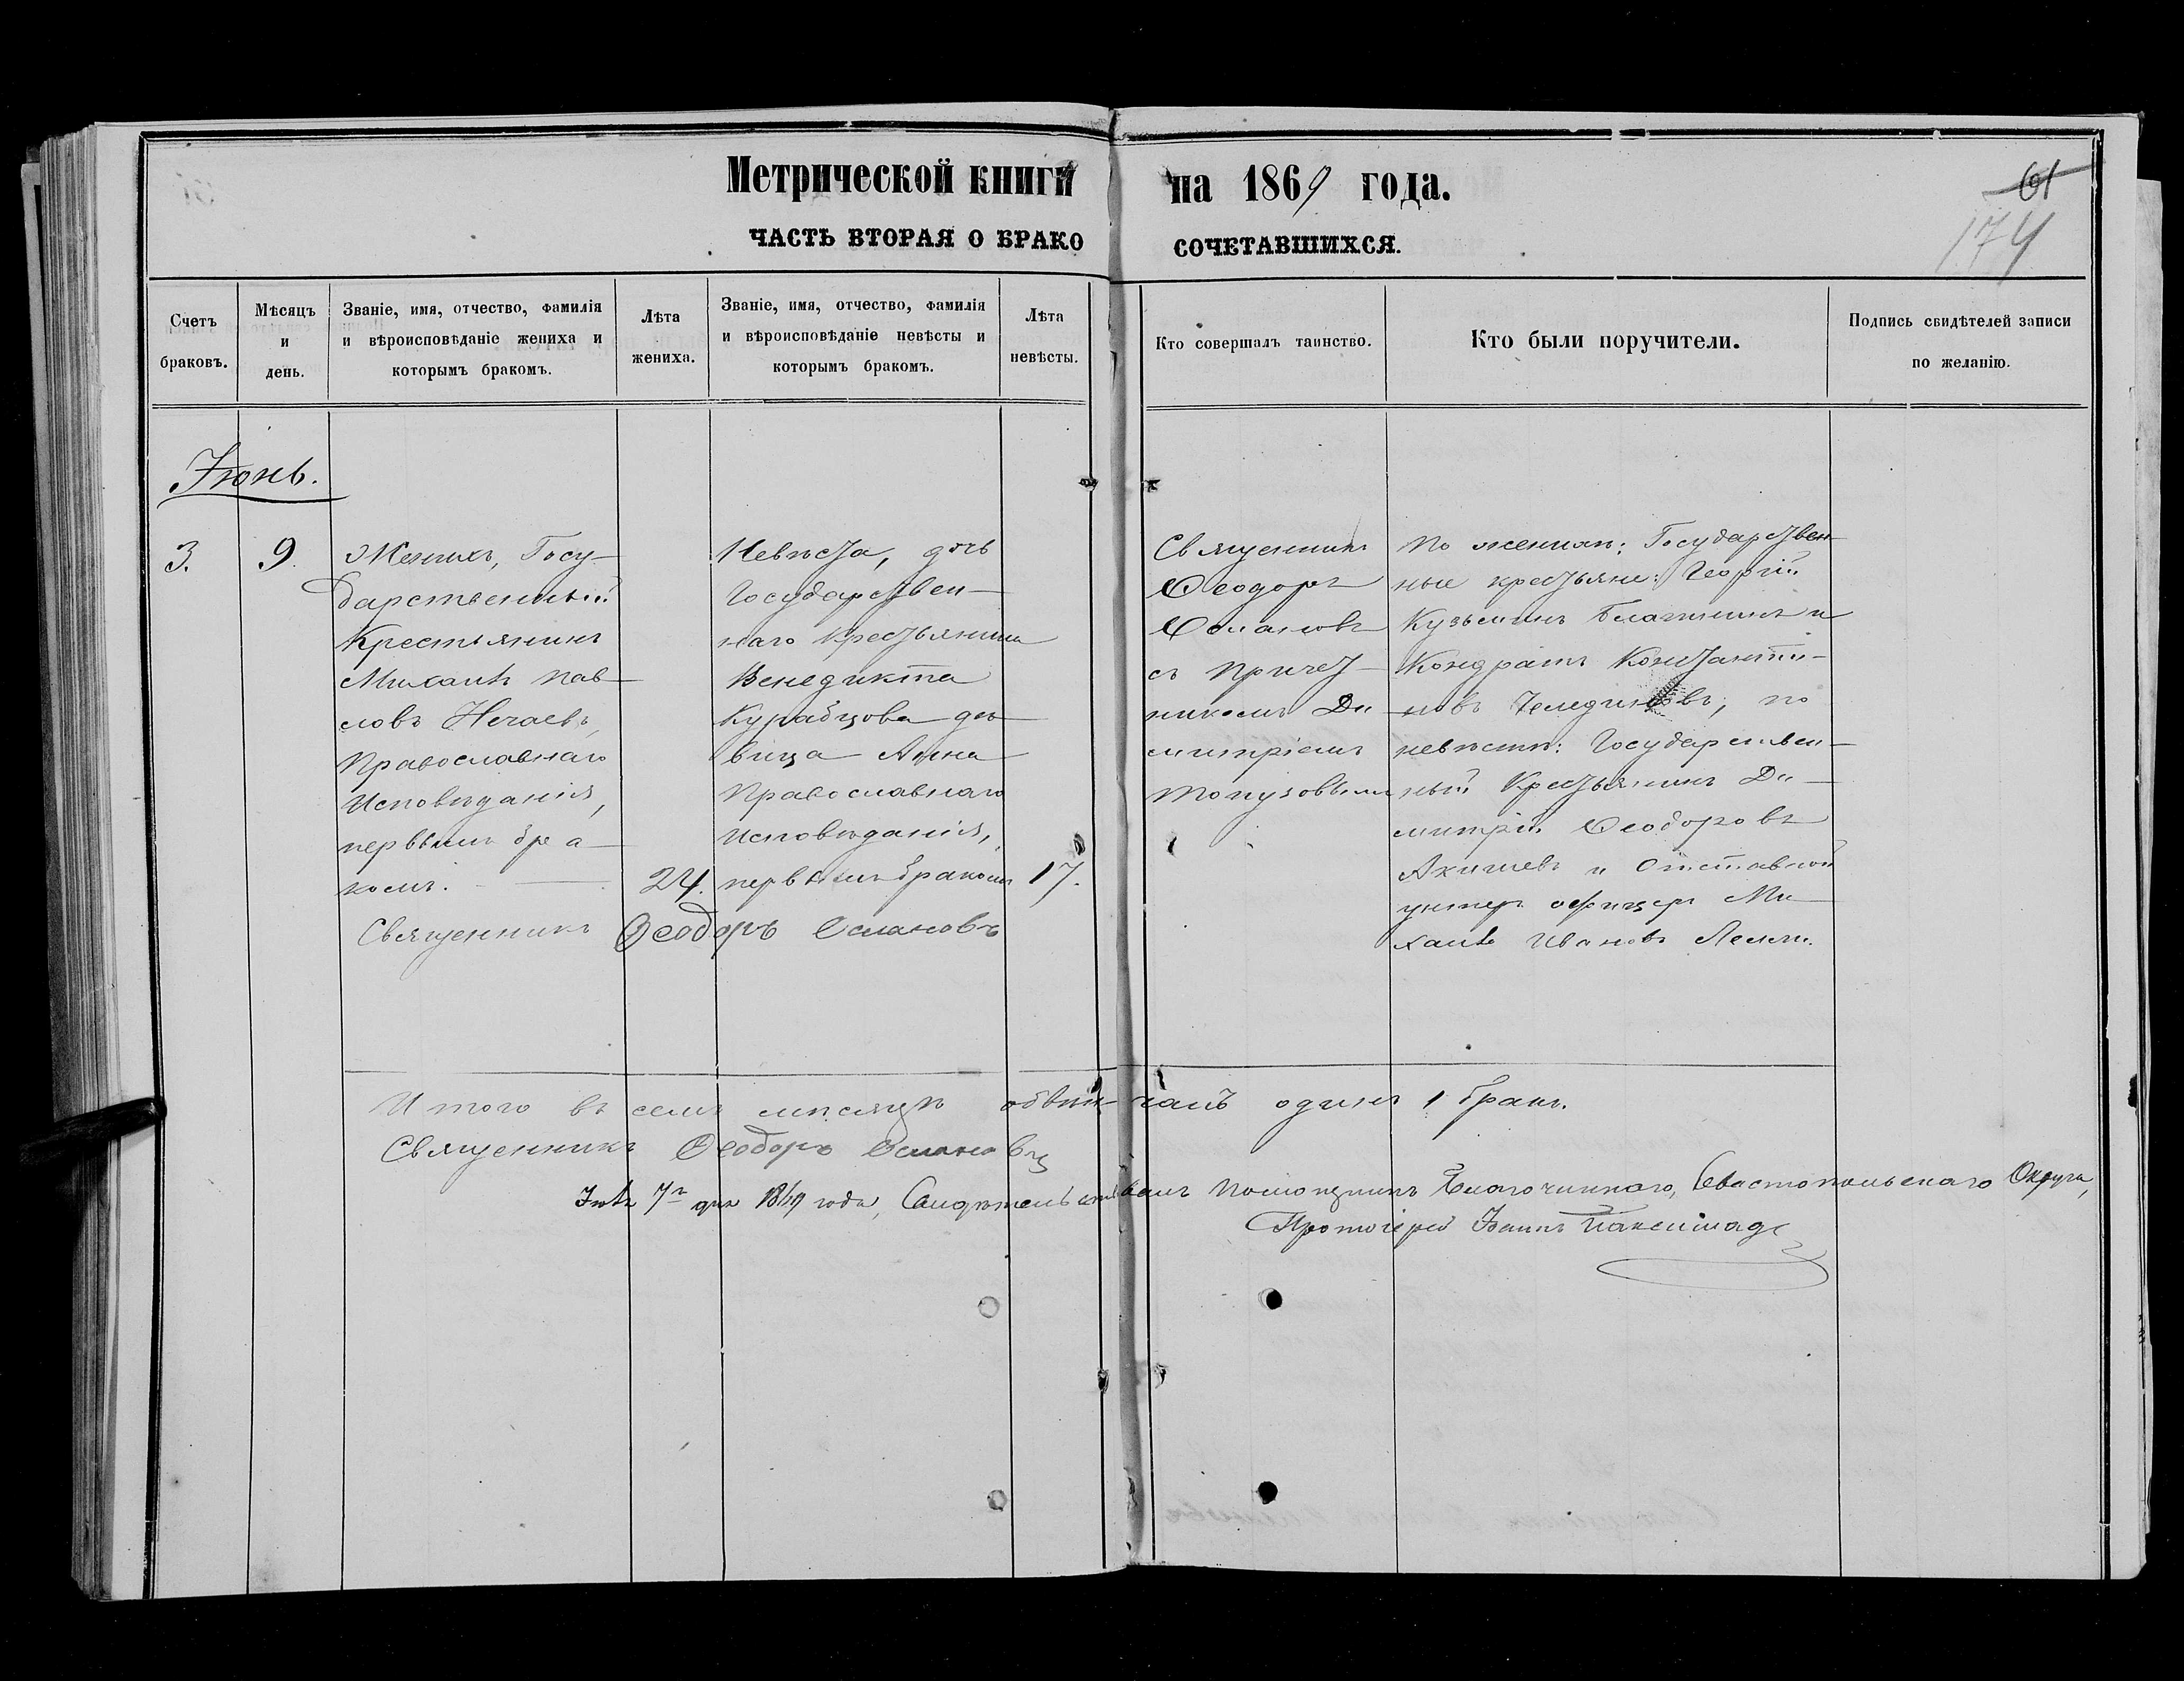 Метрической книги на 1869 года.
61
174
ЧАСТЬ ВТОРАЯ О БРАКОСОЧЕТАВШИХСЯ.
Счетъ браковъ.
Мѣсяцъ и день.
Званіе, имя, отчество, фамилія и вѣроисповѣданіе жениха и которымъ бракомъ.
Лѣта жениха.
Званіе, имя, отчество, фамилія и вѣроисповѣданіе невѣсты и которымъ бракомъ.
Лѣта невѣсты.
Кто совершалъ таинство.
Кто были поручители.
Подпись свидѣтелей записи по желанію.
Іюнь.
3.
9.
Женихъ, Госу-
дарственный
Крестьянинъ
Михаилъ Пав-
ловъ Нечаевъ,
Православнаго
Исповѣданія,
первымъ бра-
комъ.
24.
Невѣста, дочь
Государствен-
наго Крестьянина
Венедикта
Курабцова дѣ-
вица Анна
Православнаго
Исповѣданія,
первымъ бракомъ
17.
Священникъ Ѳеодоръ Османовъ
Священникъ
Ѳеодоръ
Османовъ
съ причет-
никомъ Ди-
митріемъ
Топузовымъ
По женихѣ: Государствен-
ные крестьяне: Георгій
Кузьминъ и
Кондратъ Константи-
новъ по
невѣстѣ: Государствен-
ный Крестьянинъ Ди-
митрій Ѳеодоровъ
Акишевъ и Отставной
унтеръ офицеръ Ми-
хаилъ Ивановъ
Итого въ семъ мѣсяцѣ обвѣнчанъ одинъ 1 бракъ.
Священникъ Ѳеодоръ Османовъ
Іюля 7го дня 1869 года, Свидѣтельствовалъ Помощникъ Благочиннаго, Севастопольскаго Округа,
Протоіерей Іоаннъ